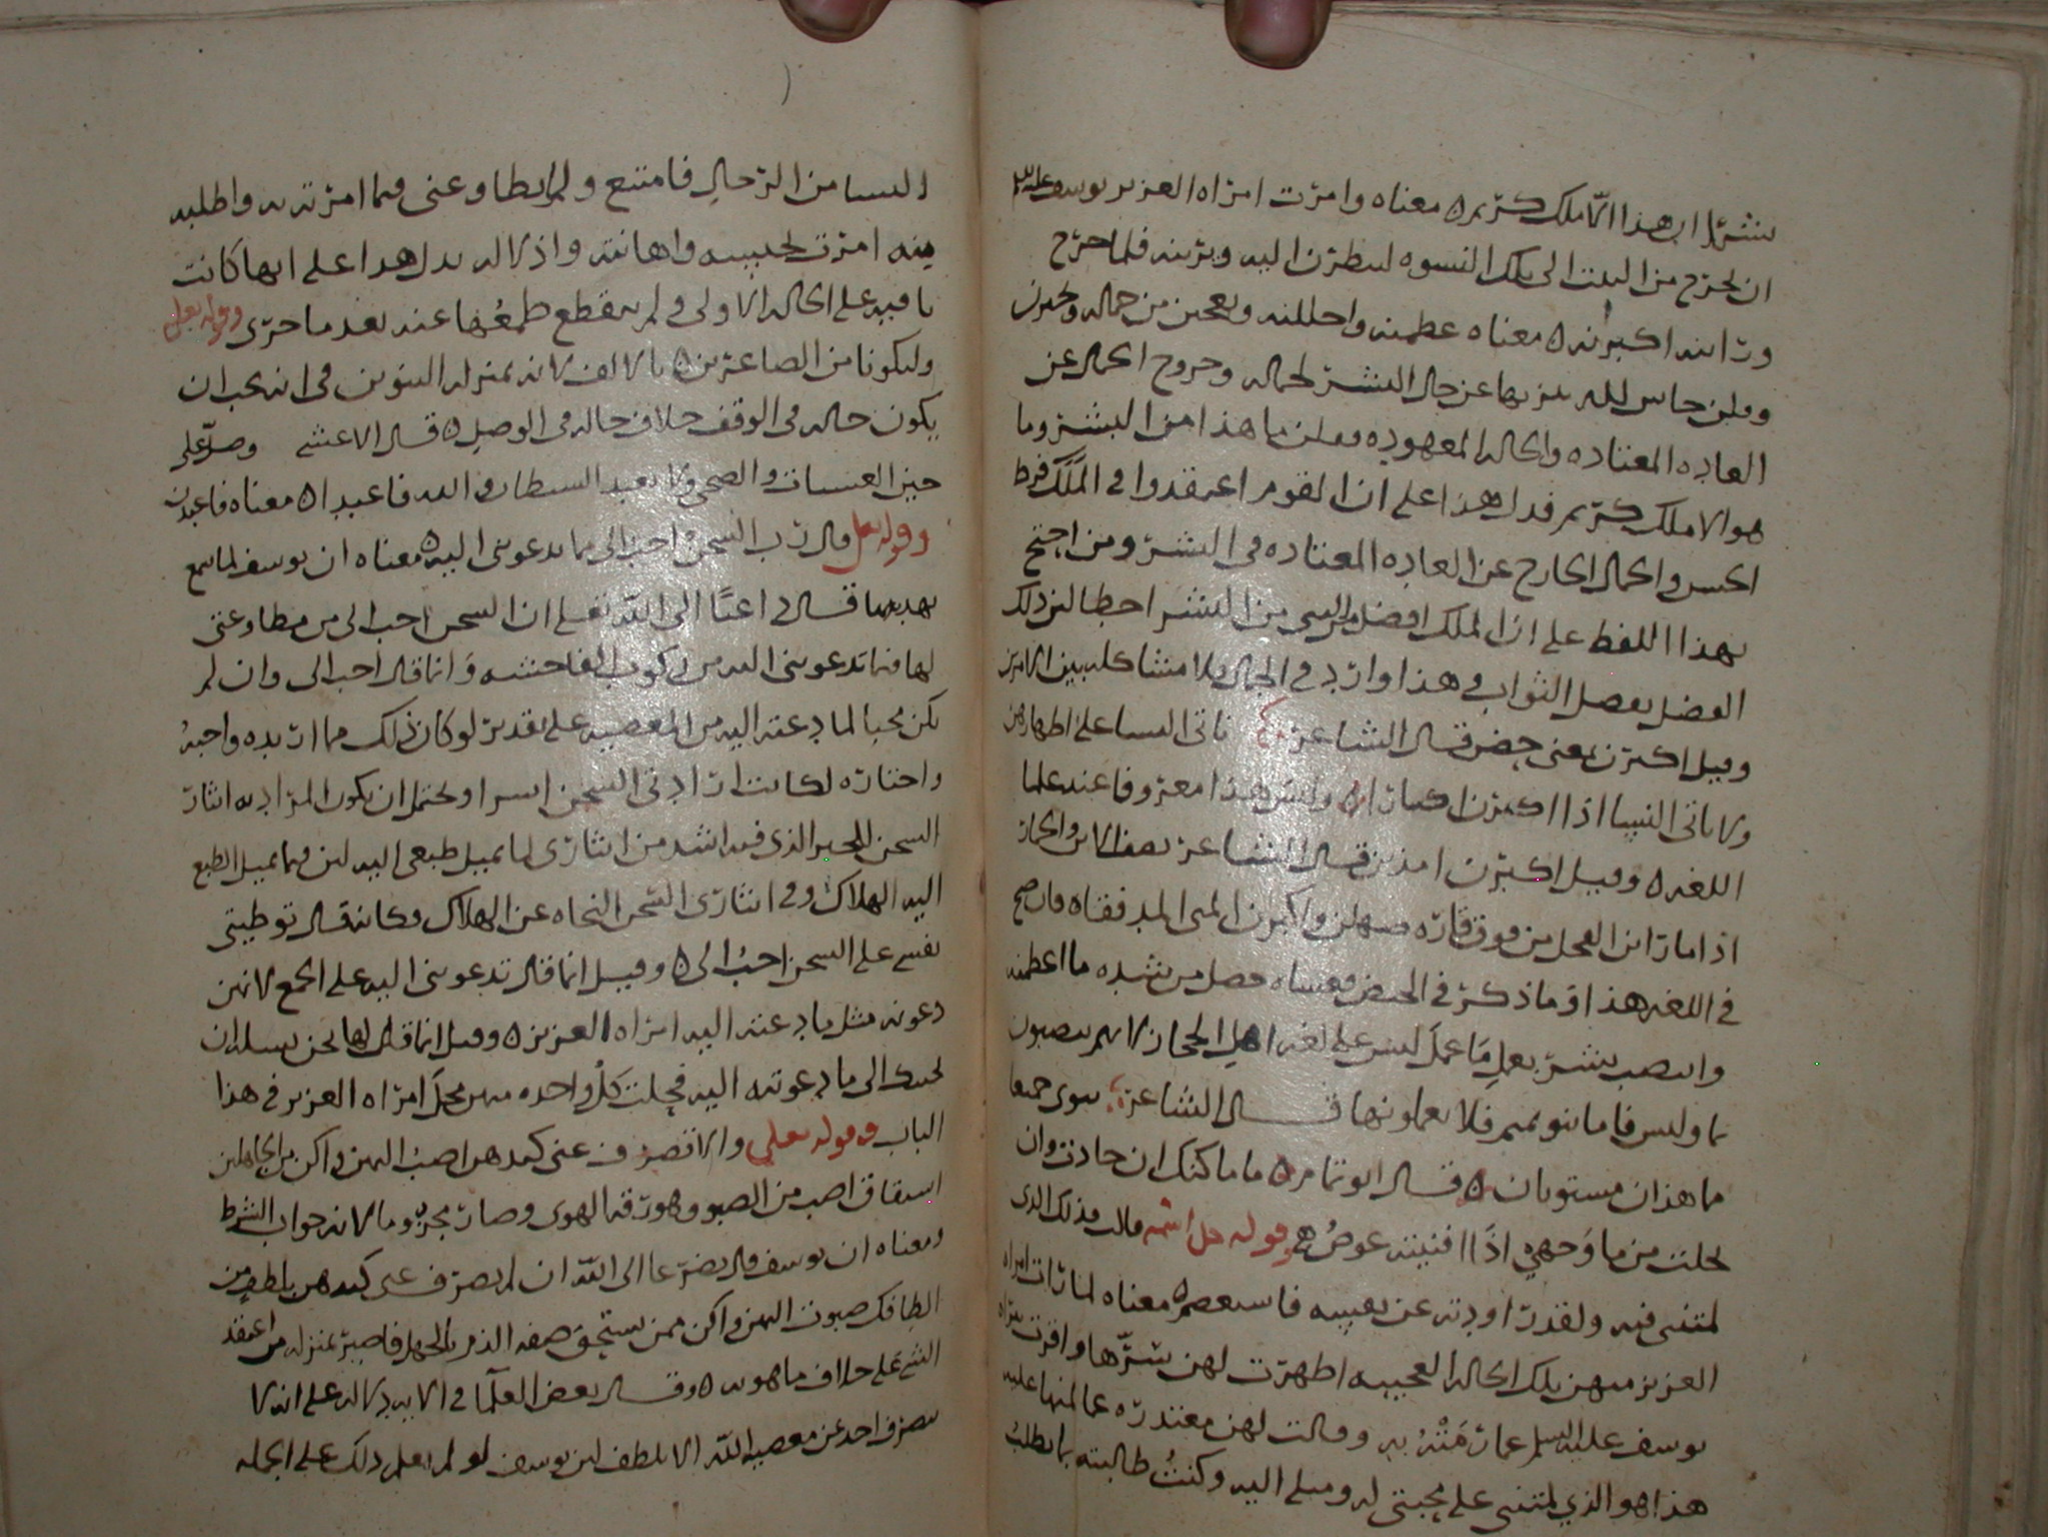 بشرا ان هذا الا ملك كريم ه معناه وامرت امراه العزيز يوسف عليه السلم
ان يخرج من البيت الى تلك النسوه لينظرن اليه ويرينه فلما خرج
ورانه اكبرنه ه معناه عظمنه واجللنه وتعجبن من جماله وتحيرن
وقلن حاش لله تنزيها عن حال البشر لجماله وخروج الجمال عن
العاده المعتاده والحاله المعهوده وقلن ما هذا من البشر وما
هو الا ملك كريم فدل هذا على ان القوم اعتقدوا في الملك فرط
الحسن والجمال الخارج عن العاده المعتاده في البشر ومن احتج
بهذا اللفظ على ان الملك افضل من البشر اخطا لان ذلك
الفضل بفصل الثواب وهذا وارد في الجمال ولا مشاكله بين الامرين
وقيل اكبرن بمعنى حضن قال الشاعر ناتى النسا على اطهارهن
ولا ناتى النسا اذا اكبرن اكبارا ه وليس هذا معروفا عند علما
اللغه ه وقيل اكبرن امذين قال الشاعر يصف الاتن والحمار
اذا ما راين الفحل من فوق قاره صهلن واكبرن المنى المدفقا ه فان صح
في اللغه هذا او ما ذكر في الحيض فمعناه حصل من شده ما اعظمنه
وانتصب بشرا بعمل ما عمل ليس على لغه اهل الحجاز لانهم ينصبون
بما وليس فاما بنو تميم فلا يعملونها قال الشاعر سوى جمعا
ما هذان مستويان ه قال ابو تمام ه ما ماكنك ان حادت وان
بخلت من ما وجهي اذا افنيته عوض ه وقوله جل اسمه قالت فذلكن الذى
لمتننى فيه ولقد راودته عن نفسه فاستعصم ه معناه لما رات امراه
العزيز منهن تلك الحاله العجيبه اظهرت لهن سرها واقرت ببراه
يوسف عليه السلم عما رمته به وقالت لهن معتذره عما لمنها عليه
هذا هو الذي لمتننى على محبتى له وميلى اليه وكنت طالبته بما يطلب
النسا من الرجال فامتنع ولم يطاوعنى فيما امرته به واطلبه
منه امرت بحبسه واهانته واذلاله يدل هذا على انها كانت
باقيه على الحاله الاولى ولم ينقطع طمعها عنه بعد ما جرى وقوله تعلى
وليكونا من الصاغرين ه بالالف لانه بمنزله التنوين في انه يجب ان
يكون حاله في الوقف خلاف حاله في الوصل ه قال الاعشى وصل على
حين العشيات والضحى ولا تعبد الشيطان والله فاعبدا ه معناه فاعبدن
وقوله تعلى قال رب السجن احب الى مما يدعوننى اليه ه معناه ان يوسف لما سمع
تهديدها قال راغبا الى الله تعلى ان السجن احب الى من مطاوعتى
لها فيما تدعوننى اليه من ركوب الفاحشه وانما قال احب الى وان لم
يكن محبا لما دعته اليه من المعصيه على تقدير لو كان ذلك مما اريده واحبه
واختاره لكانت ارادتى السجن اسرا ويحتمل ان يكون المراد به ايثار
السجن للخير الذى فيه اشد من ايثارى لما يميل طبعى اليه لان فيما يميل الطبع
اليه الهلاك وفى ايثارى السجن النجاه عن الهلاك فكانه قال توطيتى
نفسى على السجن احب الى ه وقيل انما قال تدعوننى اليه على الجمع لانهن
دعونه مثل ما دعته اليه امراه العزيز ه وقيل انما قلن لها نحن نساله ان
يجيبك الى ما دعوته اليه فحلت كل واحده منهن محل امراه العزيز في هذا
الباب وقوله تعلى والا تصرف عنى كيدهن اصب اليهن واكن من الجاهلين
اشتقاق اصب من الصبو وهو رقه الهوى وصار مجزوما لانه جواب الشرط
ومعناه ان يوسف قال تضرعا الى الله ان لم تصرف عنى كيدهن بلطف من
الطافك صبوت اليهن واكن ممن يستحق صفه الذم بالجهل فاصير بمنزله من اعتقد
الشى على خلاف ما هو به ه وقال بعض العلما في الايه دلاله على انه لا
ينصرف احد عن معصيه الله الا بلطف لان يوسف لو لم يعلم ذلك على الجمله